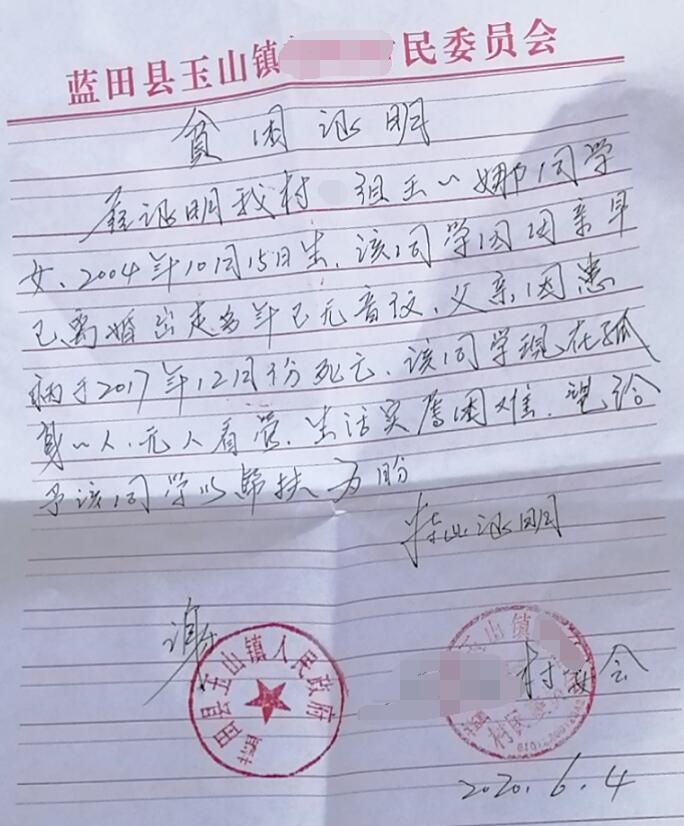 蓝田县玉山镇 民委员会
贫困证明
证明我村 组王一娜同学
女、2004年10月15日生，该同学因母亲早
已离婚出走多年已无音讯，父亲因患
病于2017年12月份死亡，该同学现在孤
身一人，无人看管，生活实属困难，望给
予该同学以帮扶为盼
特此证明
田县玉山镇人民政府
玉山镇
村 会
村民委
2020.6.4